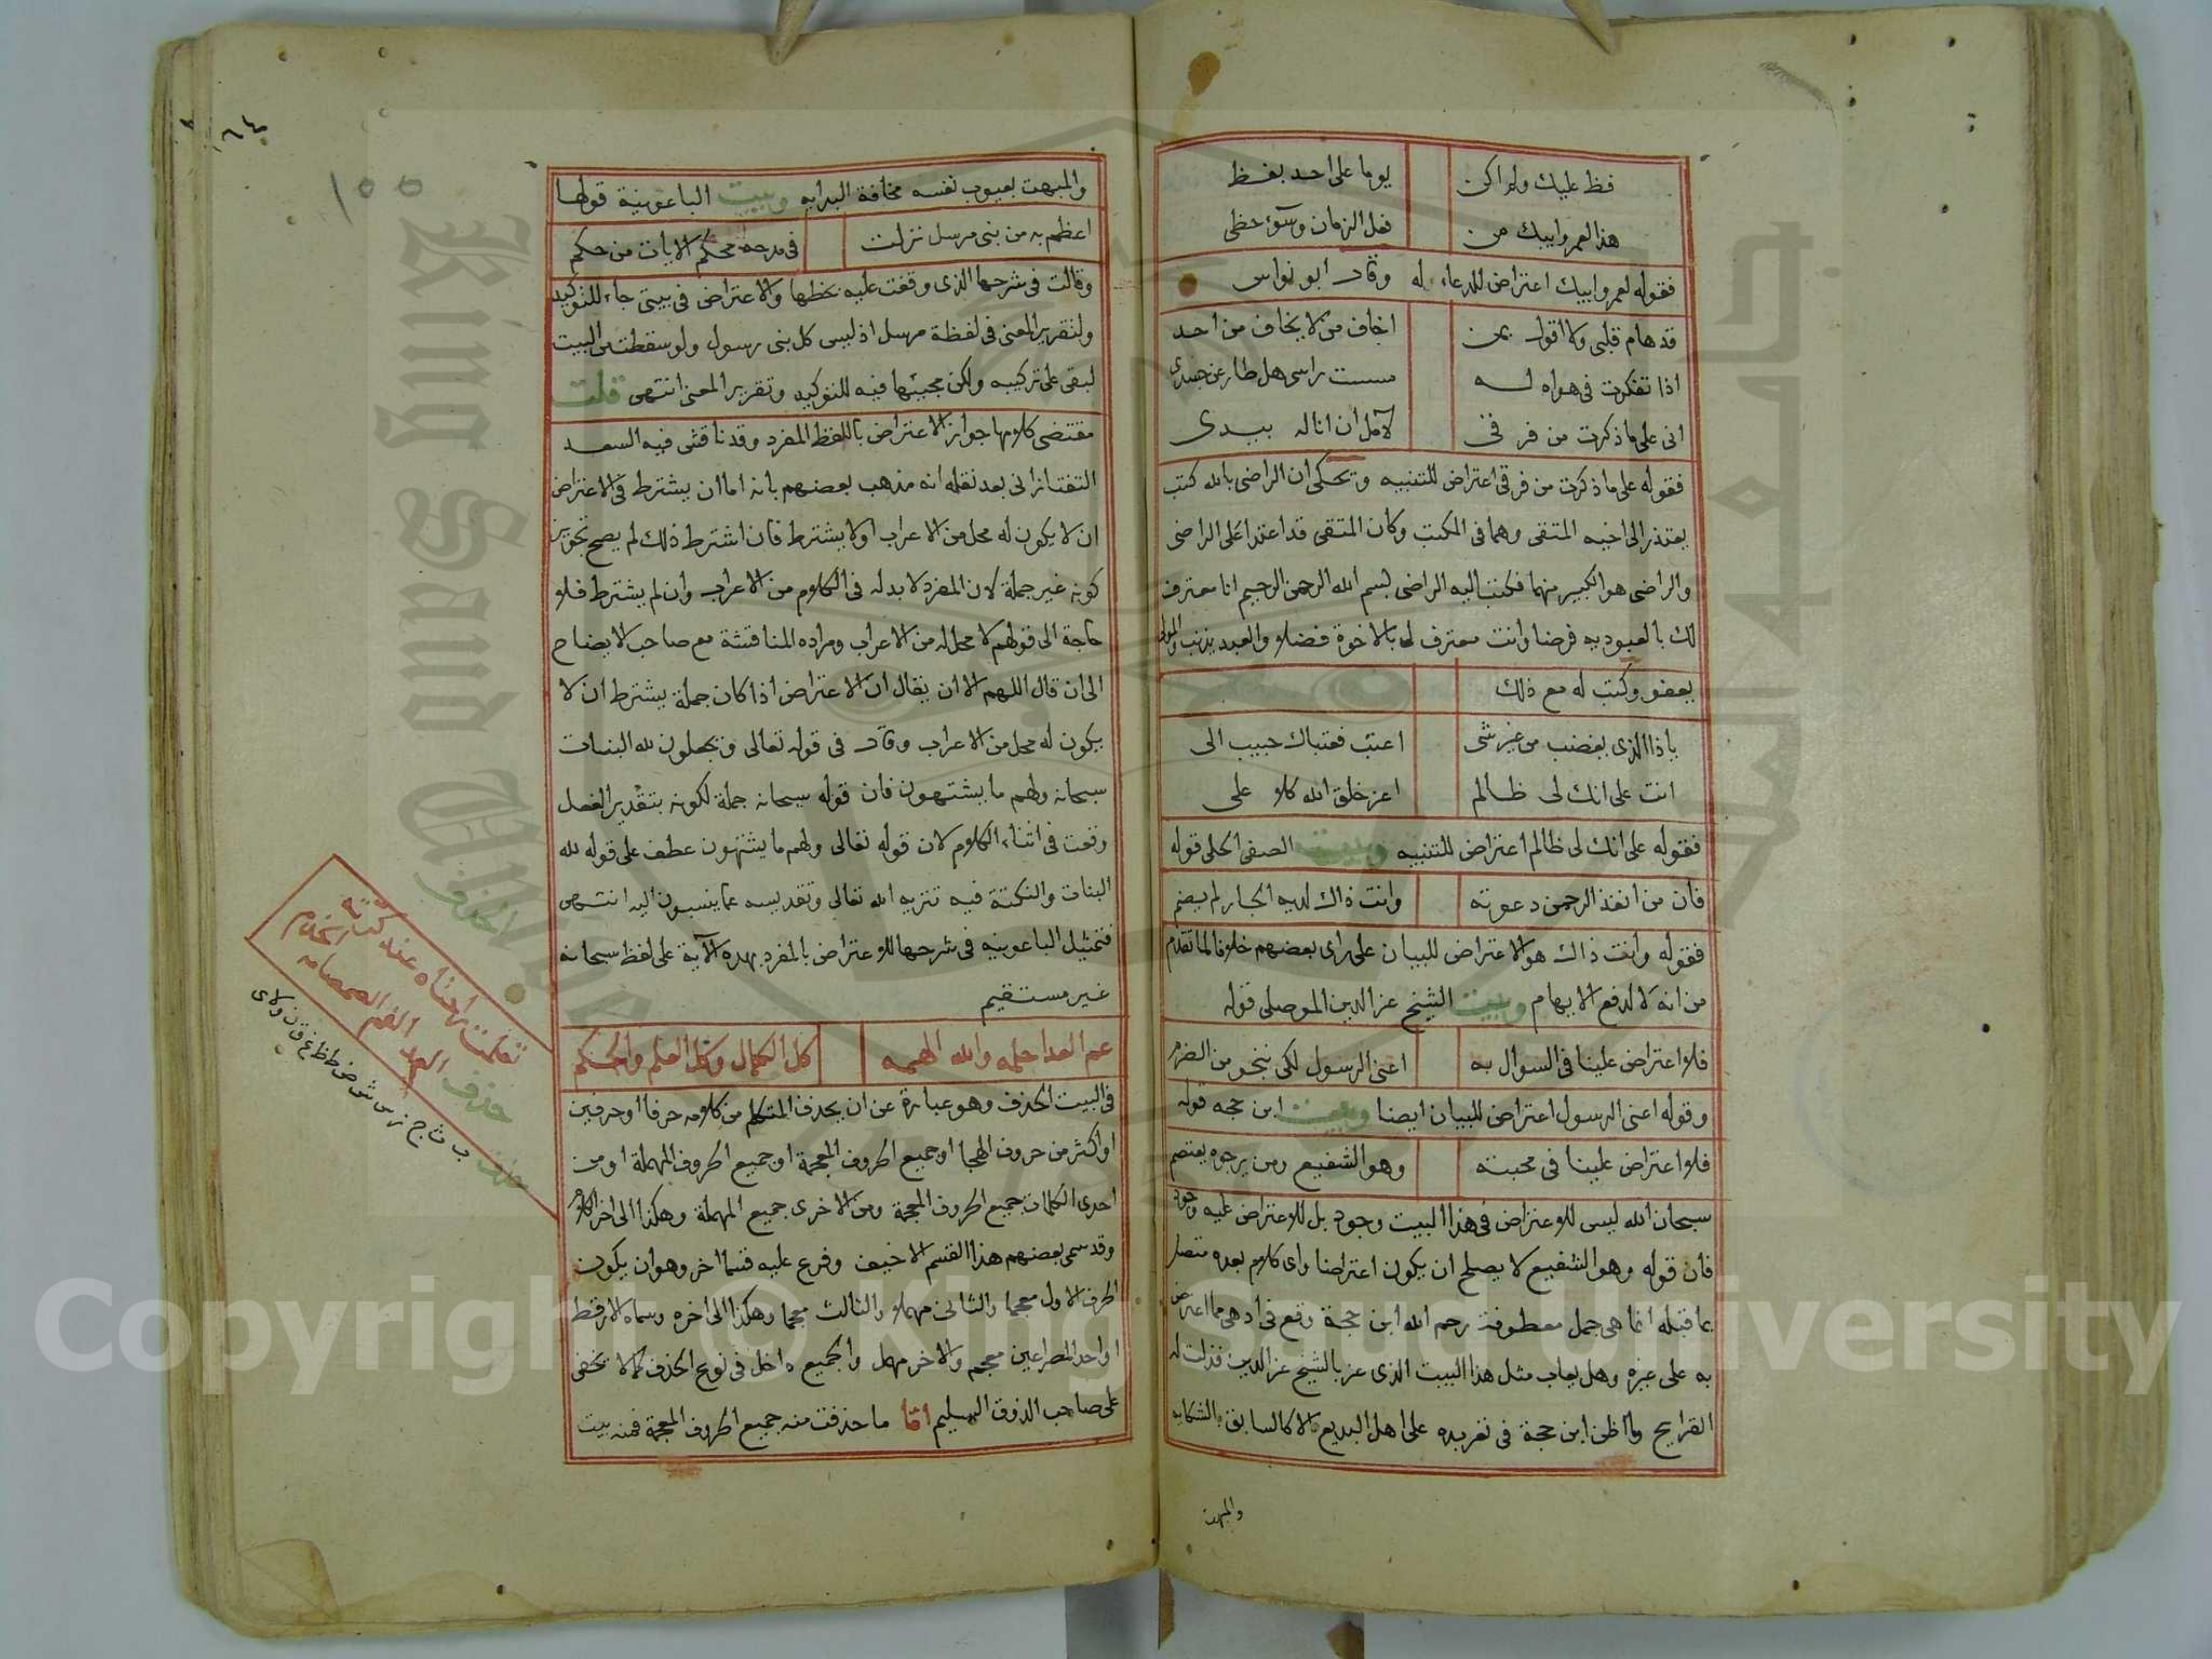 فظ عليك ولم اكن يوما على احد بفظ
هذا لعمر وابيك من فعل الزمان وسوء حظى
فقوله لعمر وابيك اعتراض للدعاء له وقال ابو نواس
قد هام قلبى ولا اقول بمن اخاف من لا يخاف من احد
اذا تفكرت فى هواه له مسست راسى هل طار عن جسدى
انى على ما ذكرت من فرقى لآمل ان اناله بيدى
فقوله على ما ذكرت من فرقى اعتراض للتنبيه وتحكى ان الراضى بالله كتب
يعتذر الى اخيه المتقى وهما فى المكتب وكان المتقى قد اعتدا على الراضى
والراضى هو الكبير منهما فكتب اليه الراضى بسم الله الرحمن الرحيم انا معترف
لك بالعبوديه فرضا وانت معترف لى بالاخوة فضلا والعبد يذنب والمولى
يعفو وكتب له مع ذلك
يا ذا الذى يغضب من غير شى اعتب فعتباك حبيب الى
انت على انك لى ظالم اعز خلق الله كلا على
فقوله على انك لى ظالم اعتراض للتنبيه وبيت الصفى الحلى قوله
فان من انفذ الرحمن دعوته وانت ذاك لديه الجار لم يضم
فقوله وانت ذاك هو الاعتراض للبيان على راى بعضهم خلافا لما تقدم
من انه لا لدفع الايهام وبيت الشيخ عز الدين الموصلى قوله
فلا اعتراض علينا فى السوال به اعنى الرسول لكى ننجو من الضرم
وقوله اعنى الرسول اعتراض للبيان ايضا وبيت ابن حجه قوله
فلا اعتراض علينا فى محبته وهو الشفيع ومن يرجوه يعتصم
سبحان الله ليس للاعتراض فى هذا البيت وجود بل للاعتراض عليه وجوه
فان قوله وهو الشفيع لا يصلح ان يكون اعتراضا واى كلام بعده متصل
بما قبله انما هى جمل معطوفة رحم الله ابن حجة وقع فى ادهى مما اعترض
به على غيره وهل يعاب مثل هذا البيت الذى عز بالشيخ عز الدين فذلت له
القرايح وما اظن ابن حجة فى تعربده على اهل البديع الا كالسابق بالشكايه
والمبهت
والمبهت بعيوب نفسه مخافة البدايه وبيت الباعونية قولها
اعظم به من نبى مرسل نزلت فى مدحه محكم الايات من حكم
وقالت فى شرحها الذى وقفت عليه بخطها والاعتراض فى بيتى جاء للتوكيد
ولتقرير المعنى فى لفظة مرسل اذ ليس كل نبى رسول ولو سقطت من البيت
لبقى على تركيبه ولكن مجيئها فيه للتوكيد وتقرير المعنى انتهى قلت
مقتضى كلامها جواز الاعتراض باللفظ المفرد وقد ناقش فيه السعد
التفتازانى بعد نقله انه مذهب بعضهم بانه اما ان يشترط فى الاعتراض
ان لا يكون له محل من الاعراب او لا يشترط فان اشترط ذلك لم يصح تجويز
كونه غير جملة لان المفرد لا بد له فى الكلام من الاعراب وان لم يشترط فلا
حاجة الى قولهم لا محل له من الاعراب ومراده المناقشة مع صاحب الايضاح
الى ان قال اللهم الا ان يقال ان الاعتراض اذا كان جملة يشترط ان لا
يكون له محل من الاعراب وقال فى قوله تعالى ويجعلون لله البنات
سبحانه ولهم ما يشتهون فان قوله سبحانه جملة لكونه بتقدير الفعل
وقعت فى اثناء الكلام لان قوله تعالى ولهم ما يشتهون عطف على قوله لله
البنات والنكتة فيه تنزيه الله تعالى وتقديسه عما ينسبون اليه انتهى
فتمثيل الباعونيه فى شرحها للاعتراض بالمفرد بهذه الآية على لفظ سبحانه
غير مستقيم
عم العدا حلمه والله الهمه كل الكمال وكل العلم والحكم
فى البيت الحذف وهو عبارة عن ان يحذف المتكلم من كلامه حرفا او حرفين
او اكثر من حروف الهجا او جميع الحروف المعجمة او جميع الحروف المهملة او من
احدى الكلمات جميع الحروف المعجمة ومن الاخرى جميع المهملة وهكذا الى اخر الكلام
وقد سمى بعضهم هذا القسم الاخيف وفرع عليه قسما اخر وهو ان يكون
الحرف الاول معجما والثانى مهملا والثالث معجما وهكذا الى اخره وسماه الارقط
او احد المصراعين معجم والاخر مهمل والجميع داخل فى نوع الحذف كما لا يخفى
على صاحب الذوق السليم اما ما حذفت منه جميع الحروف المعجمة فمنه بيت
١٥٥
الحذف
حذف
ب ث ج ز س ش ض ط ظ غ ف ق ن ولاى
Copyright © King Saud University
King Saud University